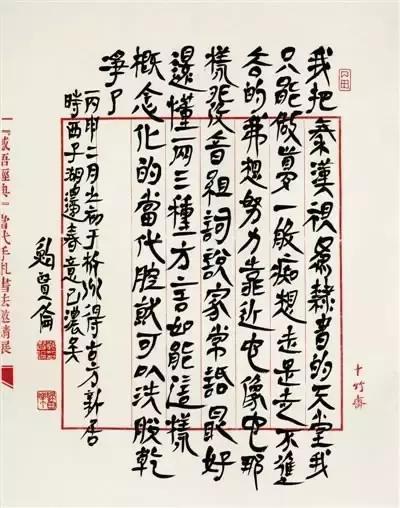 我把秦漢視爲隸書的天堂我
只能做夢一般痴想走是走不進
去的我想努力靠近它像它那
樣發音組詞說家常話最好
還懂兩三種方言如能這樣
概念化的當代腔就可以洗脫乾
淨了
丙申二月于杭州得古方新居
時西子湖邊春意已濃矣
鮑賢倫
十竹齋
『感悟經典』當代手札書法邀請展